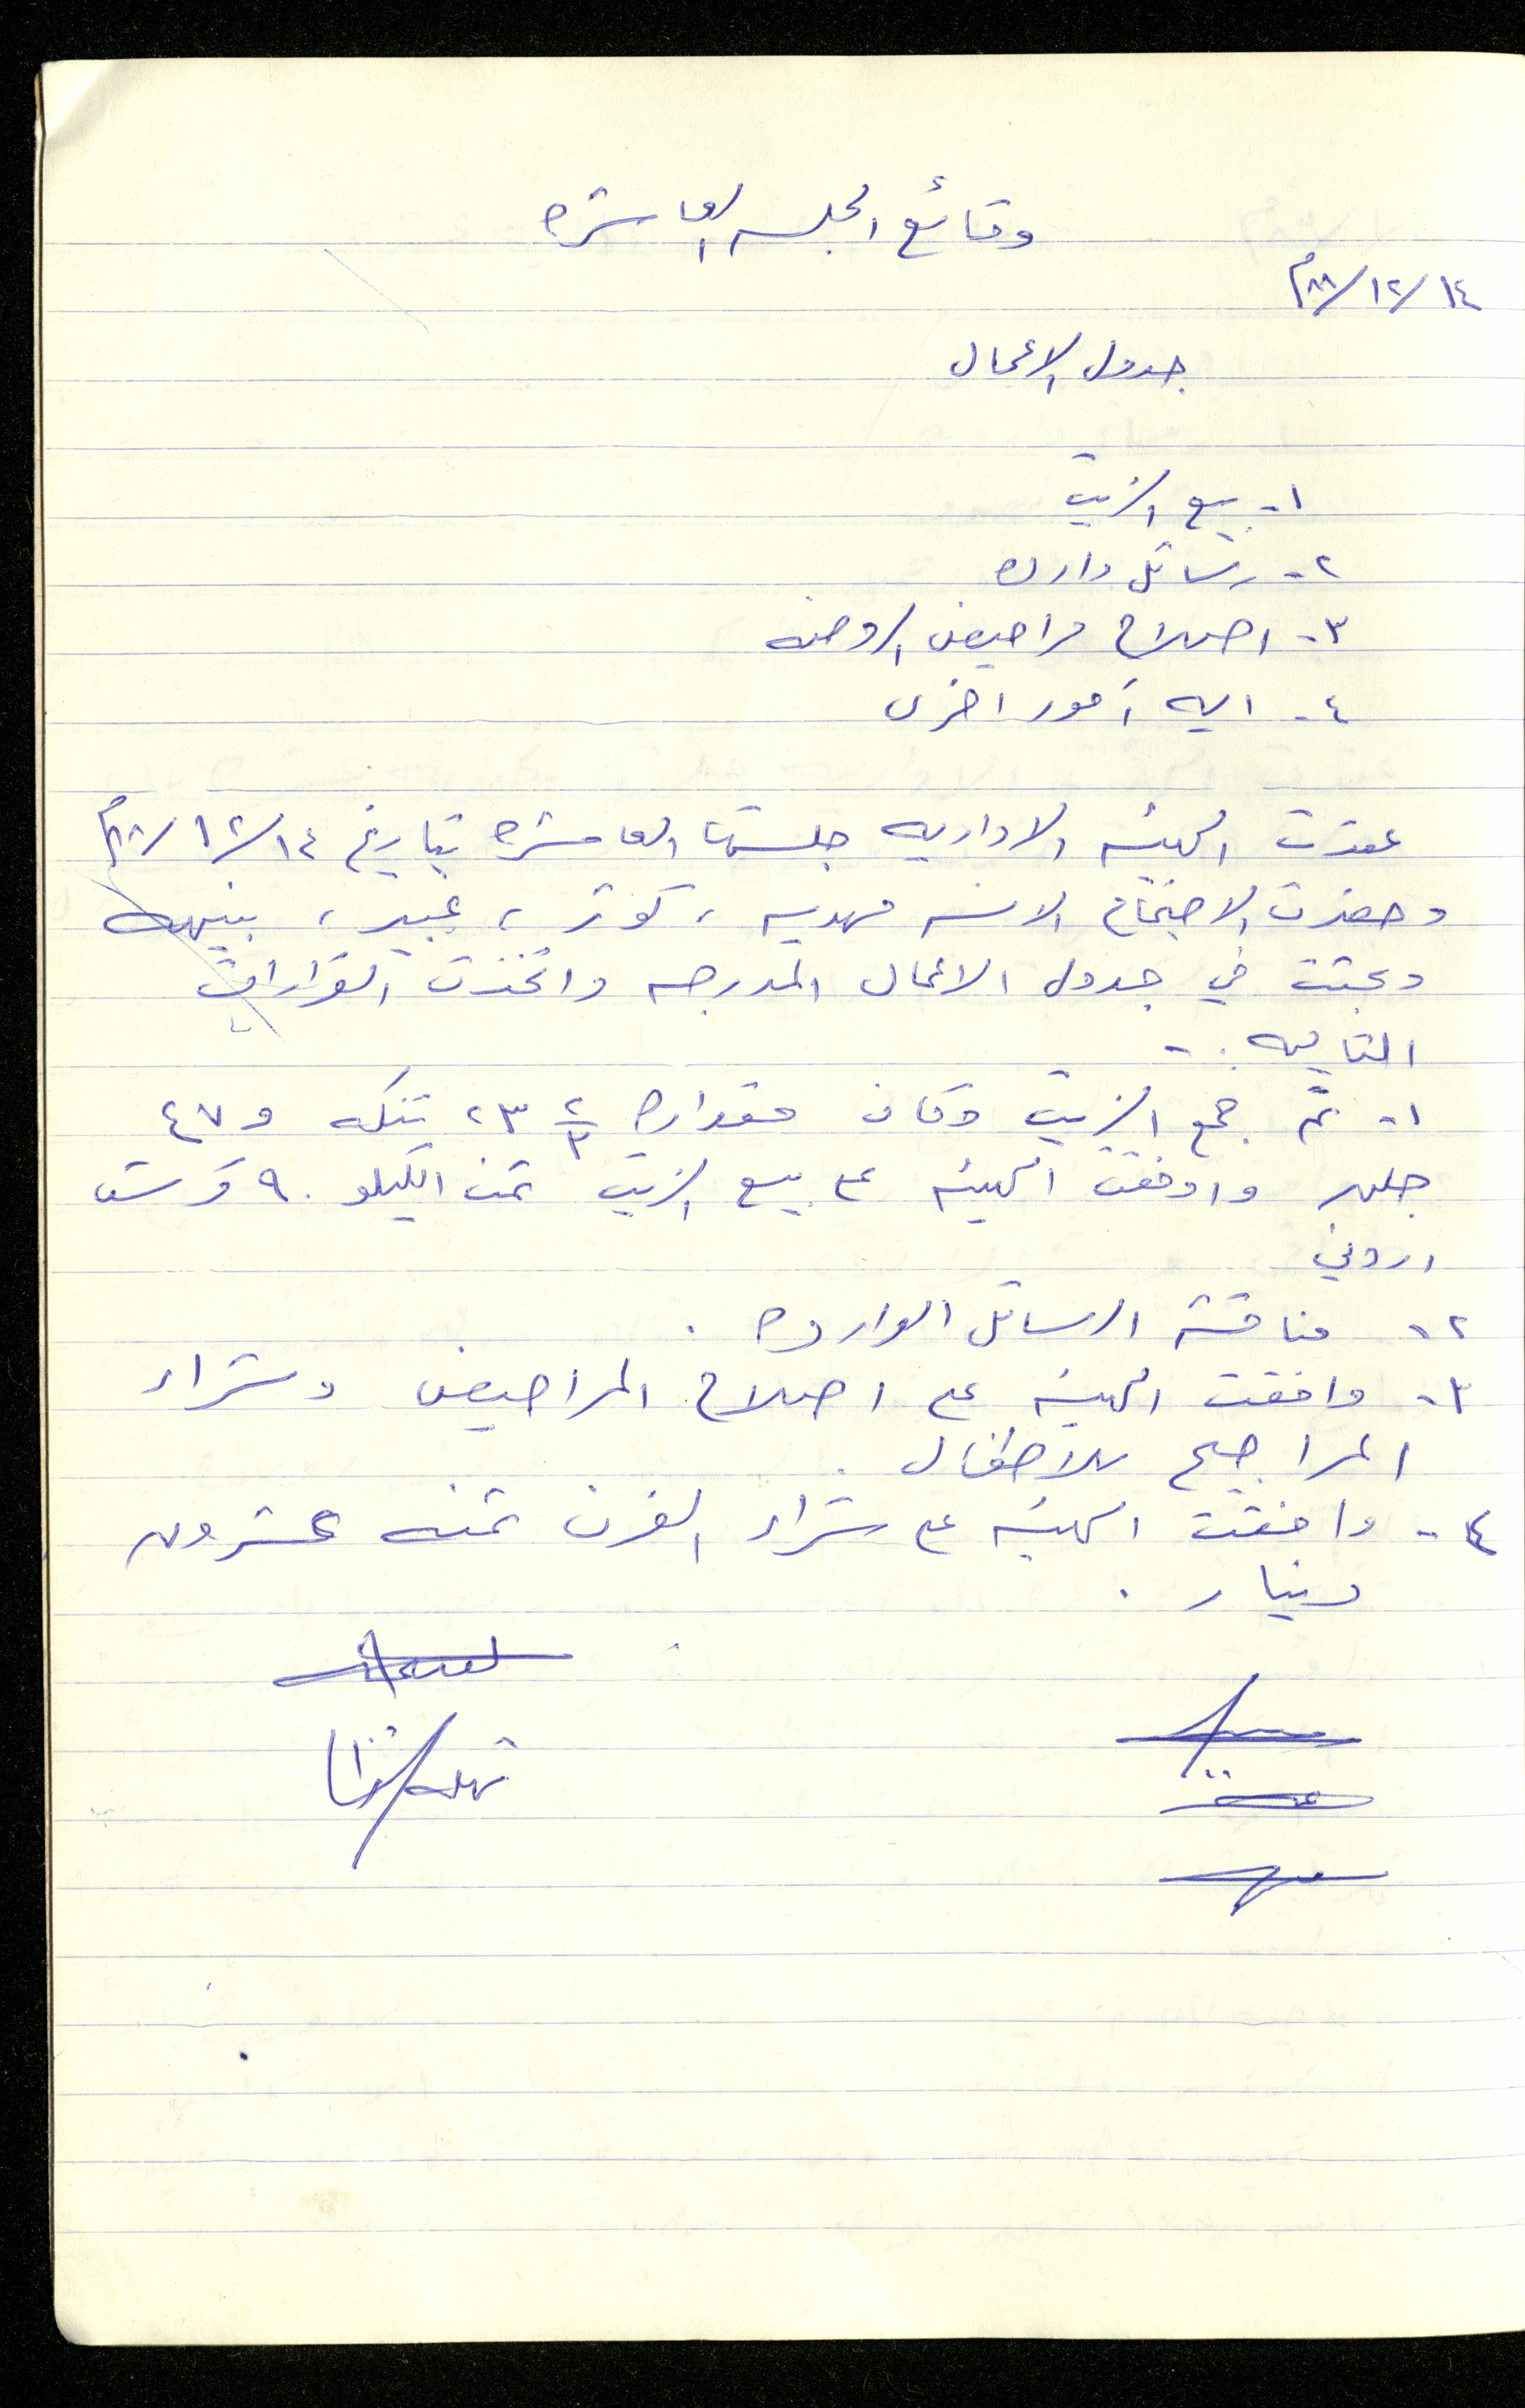 وقائع الجلسه العاشره
١٤/١٢/٨٨م
جدول الاعمال
١- بيع الزيت
٢- رسائل وارده
٣- اصلاح مراحيض الروضه
٤- ايه أمور اخرى
عقدت الهيئه الاداريه جلستها العاشره بتاريخ ١٤/١٢/٨٨م
وحضرت الاجتماع الانسه مهديه ، كوثر ، عبير ، بنيهه
وبحثت في جدول الاعمال المدرجه واتخذت القرارات
التاليه :-
١- تم جمع الزيت وكان مقداره ٢٣ ٢/٣ تنكه و ٤٧
جلن واوفقت الهيئه على بيع الزيت ثمن الكيلو ٩٠ قرش
اردني
٢- مناقشة الرسائل الوارده .
٣- وافقت الهيئه على اصلاح المراحيض وشراء
المراجيح للاطفال .
٤- وافقت الهيئه على شراء الفرن ثمنه عشرون
دينار .